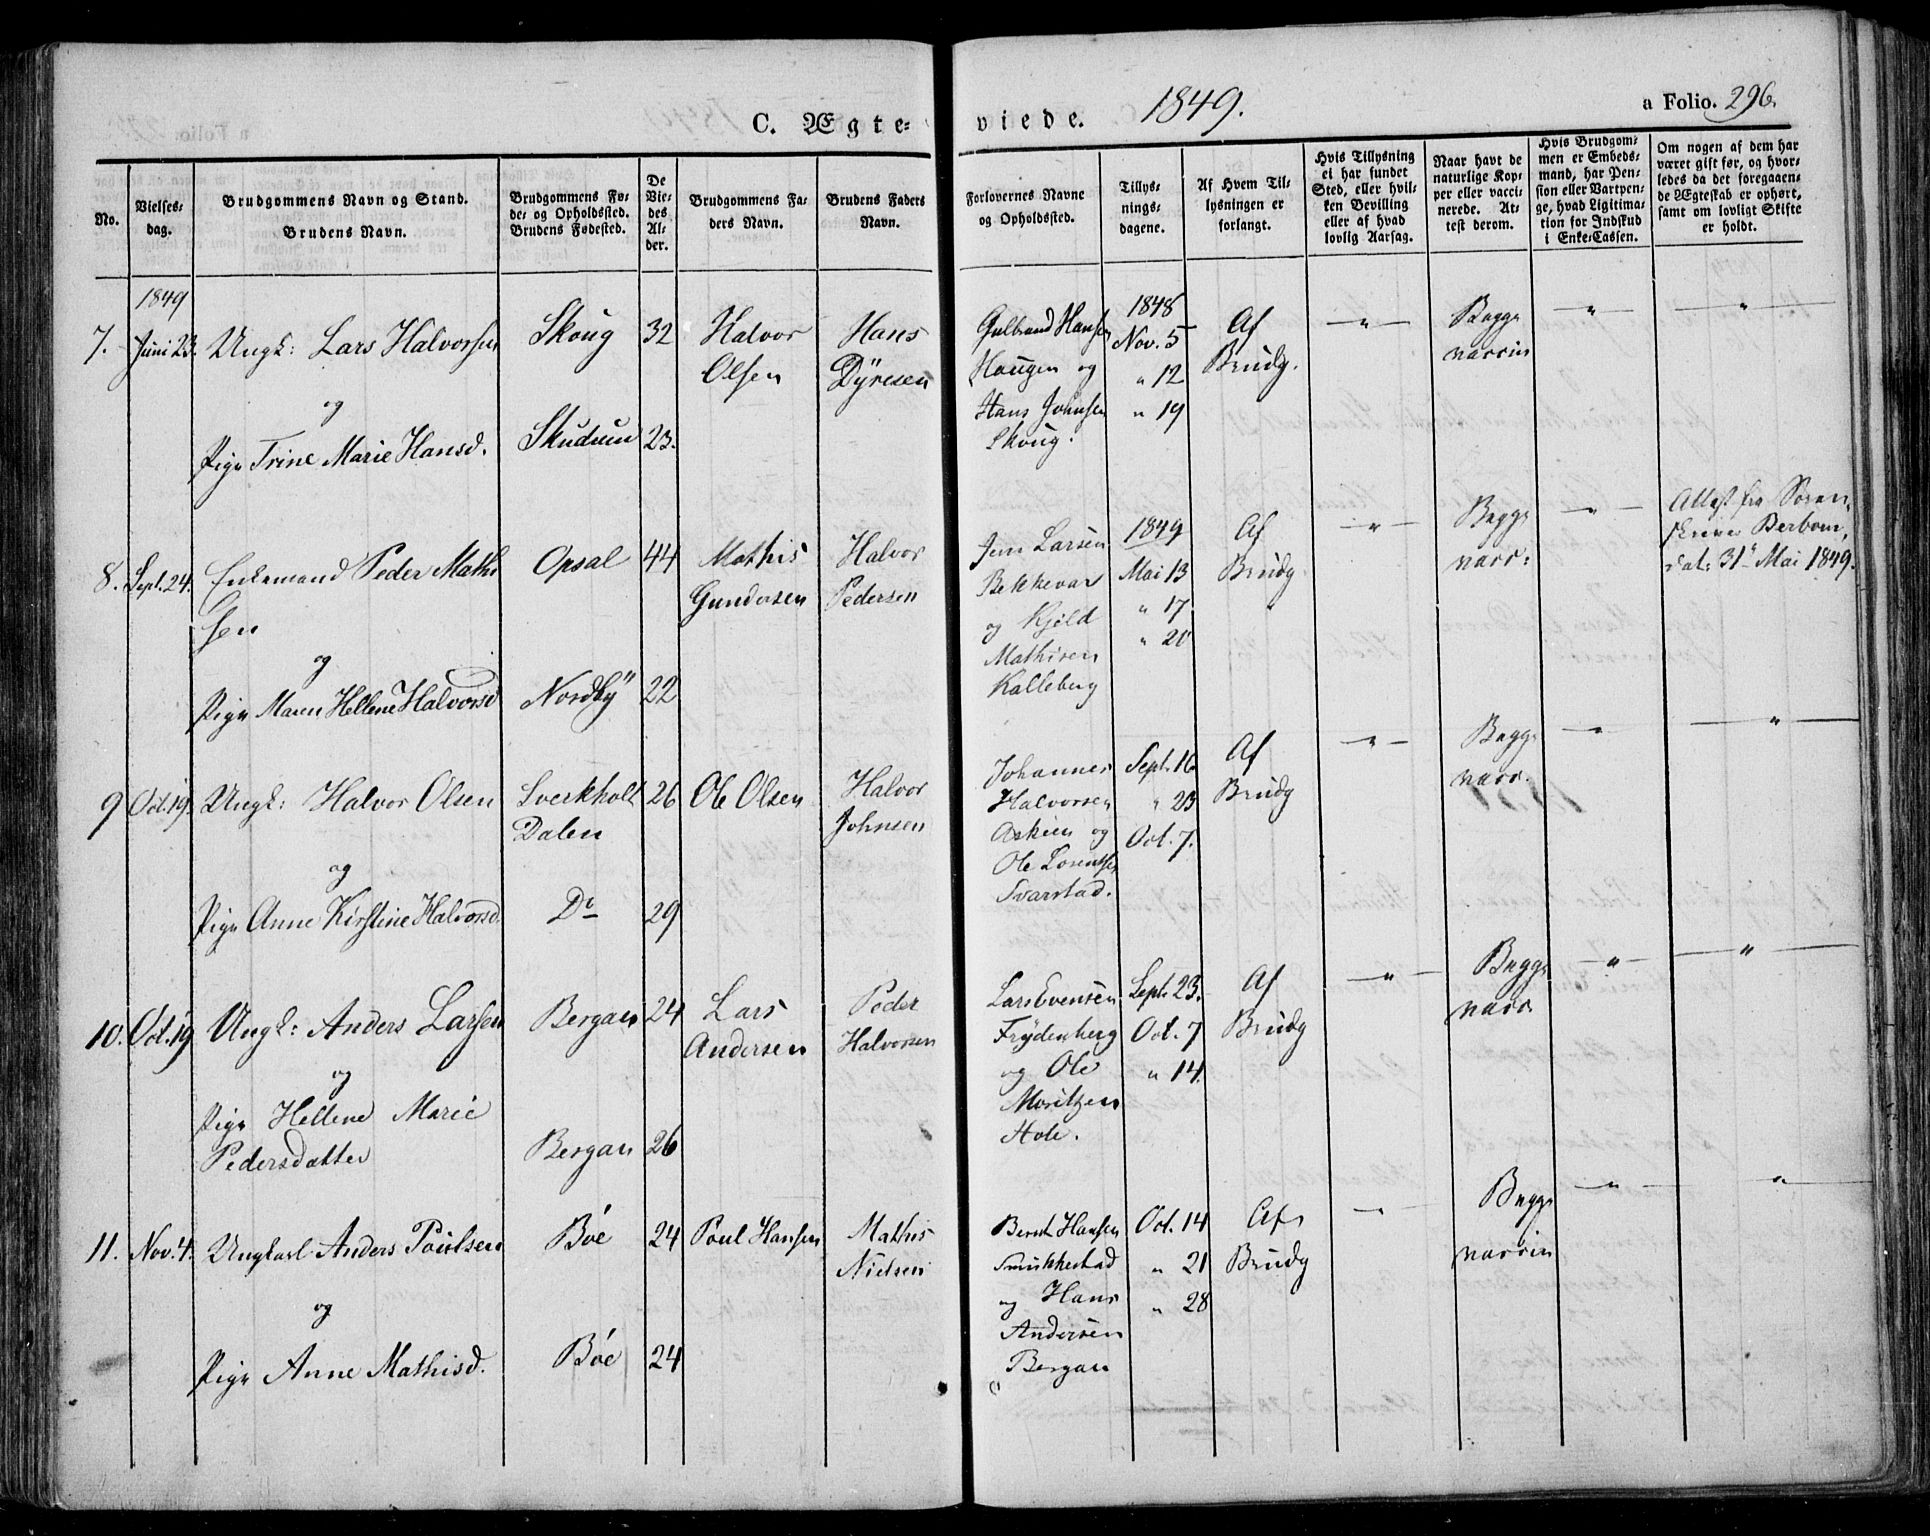 C. Ægte=
viede.
1849.
a Folio. 296.
No.
Vielses-
dag.
Brudgommens Navn og Stand.
Brudens Navn.
Brudgommens Fø-
de- og Opholdssted.
Brudens Fødested.
De
Vie-
des
Al-
der.
Brudgommens Fa-
ders Navn.
Brudens Faders
Navn.
Forlovernes Navne
og Opholdssted.
Tillys-
nings-
dagene.
Af Hvem Til-
lysningen er
forlangt.
Hvis Tillysning
ei har fundet
Sted, eller hvil-
ken Bevilling
eller af hvad
lovlig Aarsag.
Naar havt de
naturlige Kop-
per eller vacci-
nerede. At-
test derom.
Hvis Brudgom-
men er Embeds-
mand, har Pen-
sion eller Vartpen-
ge, hvad Legitima-
tion for Indskud
i Enke-Cassen.
Om nogen af dem har
været gift før, og hvor-
ledes da det foregaaen-
de Ægteskab er ophørt,
samt om lovligt Skifte
er holdt.
1849
7. Juni 23. Ungk: Lars Halvorsen
og
Pige Trine Marie Hansd.
Skoug 32
Skudum 23.
Halvor
Olsen
Hans
Dÿresen
Gulbrand Hansen
Haugen og
Hans Johnsen
Skoug.
1848
Nov. 5
" 12
" 19
Af
Brudg.
"
Begge
vaccin
"
"
8. Sept. 24. Enkemand Peder Mathi
sen
og
Pige Maren Hellene Halvorsd
Opsal 44
Nordbÿ 22
Mathis
Gundersen
Halvor
Pedersen
Jens Larsen
Bekkevar
og Kjøld
Mathisen
Kalleberg
1849
Mai 13
" 17
" 20
Af
Brudg
"
Begge
vacc:
"
Attest fra Soren-
skriver Berbom,
dat: 31te Mai 1849.
9 Oct. 19. Ungk: Halvor Olsen
og
Pige Anne Kirstine Halvorsd
Sverkholt 26
Dalen
Do 29
Ole Olsen
Halvor
Johnsen
Johannes
Halvorsen
Askien og
Ole Lorentsen
Svarstad.
Sept. 16
" 23
Oct. 7.
Af
Brudg
"
Begge
vacc.
"
"
10. Oct. 19 Ungk: Anders Larsen
og
Pige Hellene Marie
Pedersdatter
Bergan 24
Bergan 26
Lars
Andersen
Peder
Halvorsen
Lars Evensen
Frÿdenberg
og Ole
Moritzen
Hole.
Sept. 23.
Oct. 7
" 14.
Af
Brudg
"
Begge
vacc
"
"
11. Nov. 4. Ungkarl Anders Poulsen
og
Pige Anne Mathisd.
Bøe 24
Bøe 24
Poul Hansen
Mathis
Nielsen
Bernt Hansen
og Hans
Andersen
Bergan
Oct. 14
" 21
" 28
Af
Brudg
"
Begge
vaccin
"
"